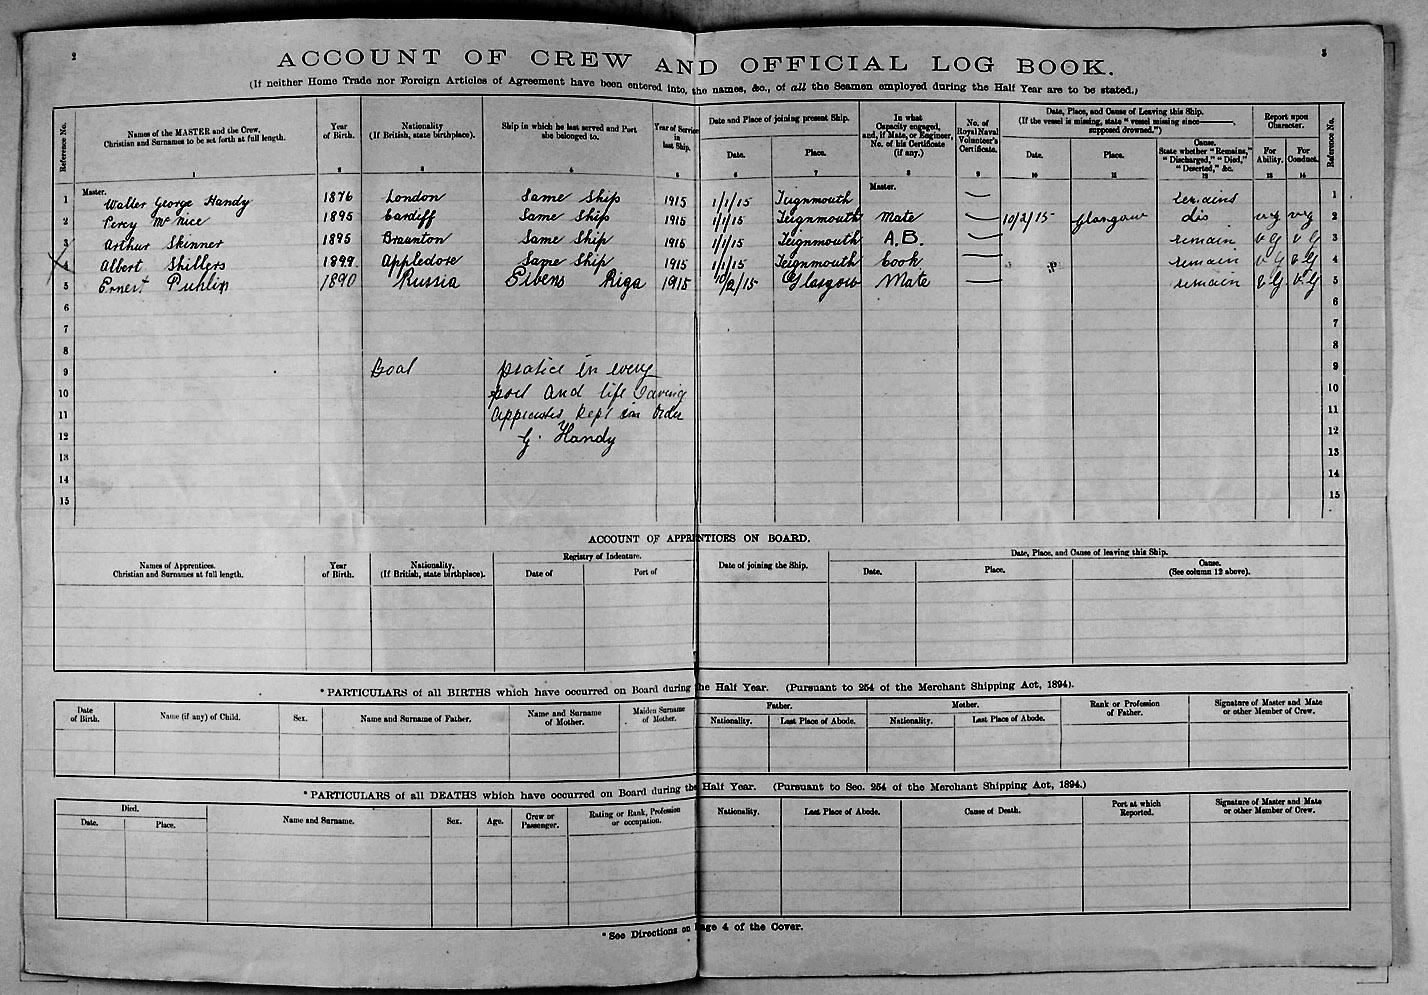 2
3
ACCOUNT OF CREW AND OFFICIAL LOG BOOK.
(If neither Home Trade nor Foreign Articles of Agreement have been entered into, the names, &c., of all the Seamen employed during the Half Year are to be stated.)
Reference No.
Names of the MASTER and the Crew. Christian and Surnames to be set forth at full length.
Year of Birth.
Nationality (If British, state birthplace).
Ship in which he last served and Port she belonged to.
Year of Service in last Ship.
Date and Place of joining present Ship.
Date.
Place.
In what Capacity engaged, and, if Mate, or Engineer, No. of his Certificate (if any.)
No. of Royal Naval Volunteer's Certificate.
Date, Place, and Cause of Leaving this Ship.
(If the vessel is missing, state "vessel missing since ———, supposed drowned.")
Date.
Place.
Cause. State whether "Remains," "Discharged," "Died," "Deserted," &c.
Report upon Character.
For Ability.
For Conduct.
Reference No.
1 2 3 4 5 6 7 8 9 10 11 12 13 14
Master.
Master.
1 Walter George Handy 1876 London Same Ship 1915 1/1/15 Teignmouth — remains 1
2 Percy Mc Nice 1895 Cardiff Same Ship 1915 1/1/15 Teignmouth Mate — 10/2/15 Glasgow dis vg vg 2
3 Arthur Skinner 1895 Braunton Same Ship 1915 1/1/15 Teignmouth A.B. — remain v G v G 3
4 Albert Shillers 1899 Appledore Same Ship 1915 1/1/15 Teignmouth Cook — remain v G v G 4
5 Ernest Puhlip 1890 Russia Sivens Riga 1915 10/2/15 Glasgow Mate — remain v G v G 5
6 6
7 7
8 8
9 Boat pratice in every 9
10 port and life saving 10
11 kept in order 11
12 G. Handy 12
13 13
14 14
15 15
ACCOUNT OF APPRENTICES ON BOARD.
Names of Apprentices. Christian and Surnames at full length.
Year of Birth.
Nationality. (If British, state birthplace).
Registry of Indenture.
Date of
Port of
Date of joining the Ship.
Date, Place, and Cause of leaving this Ship.
Date.
Place.
Cause. (See column 12 above).
*PARTICULARS of all BIRTHS which have occurred on Board during the Half Year. (Pursuant to 254 of the Merchant Shipping Act, 1894).
Date of Birth.
Name (if any) of Child.
Sex.
Name and Surname of Father.
Name and Surname of Mother.
Maiden Surname of Mother.
Father.
Nationality.
Last Place of Abode.
Mother.
Nationality.
Last Place of Abode.
Rank or Profession of Father.
Signature of Master and Mate or other Member of Crew.
*PARTICULARS of all DEATHS which have occurred on Board during the Half Year. (Pursuant to Sec. 254 of the Merchant Shipping Act, 1894.)
Died.
Date.
Place.
Name and Surname.
Sex.
Age.
Crew or Passenger.
Rating or Rank, Profession or occupation.
Nationality.
Last Place of Abode.
Cause of Death.
Port at which Reported.
Signature of Master and Mate or other Member of Crew.
*See Directions on Page 4 of the Cover.